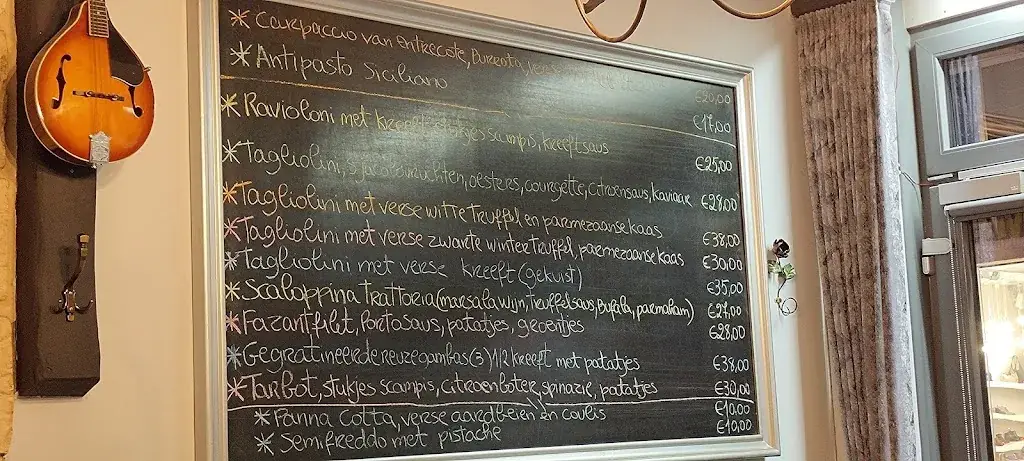 * Carpaccio van entrecote, Burrata, verse €20,00
* Antipasto Siciliano €17,00
* Ravioloni met kreeft, stukjes scampis, kreeftsaus €25,00
* Tagliolini, St Jacobsvruchten, oesters, courgette, citroensaus, kaviaar €28,00
* Tagliolini met verse witte truffel en parmezaanse kaas €38,00
* Tagliolini met verse zwarte wintertruffel, parmezaanse kaas €30,00
* Tagliolini met verse kreeft (gekuist) €35,00
* Scaloppina Trattoria (marsala wijn, Truffelsaus, Bufala, parmaham) €27,00
* Fazantfilet, Portosaus, patatjes, groentjes €28,00
* Gegratineerde reuzegambas (3) 1/2 kreeft met patatjes €38,00
* Tarbot, stukjes scampis, citroenboter, spinazie, patatjes €30,00
* Panna Cotta, verse aardbeien en coulis €10,00
* Semifreddo met pistache €10,00